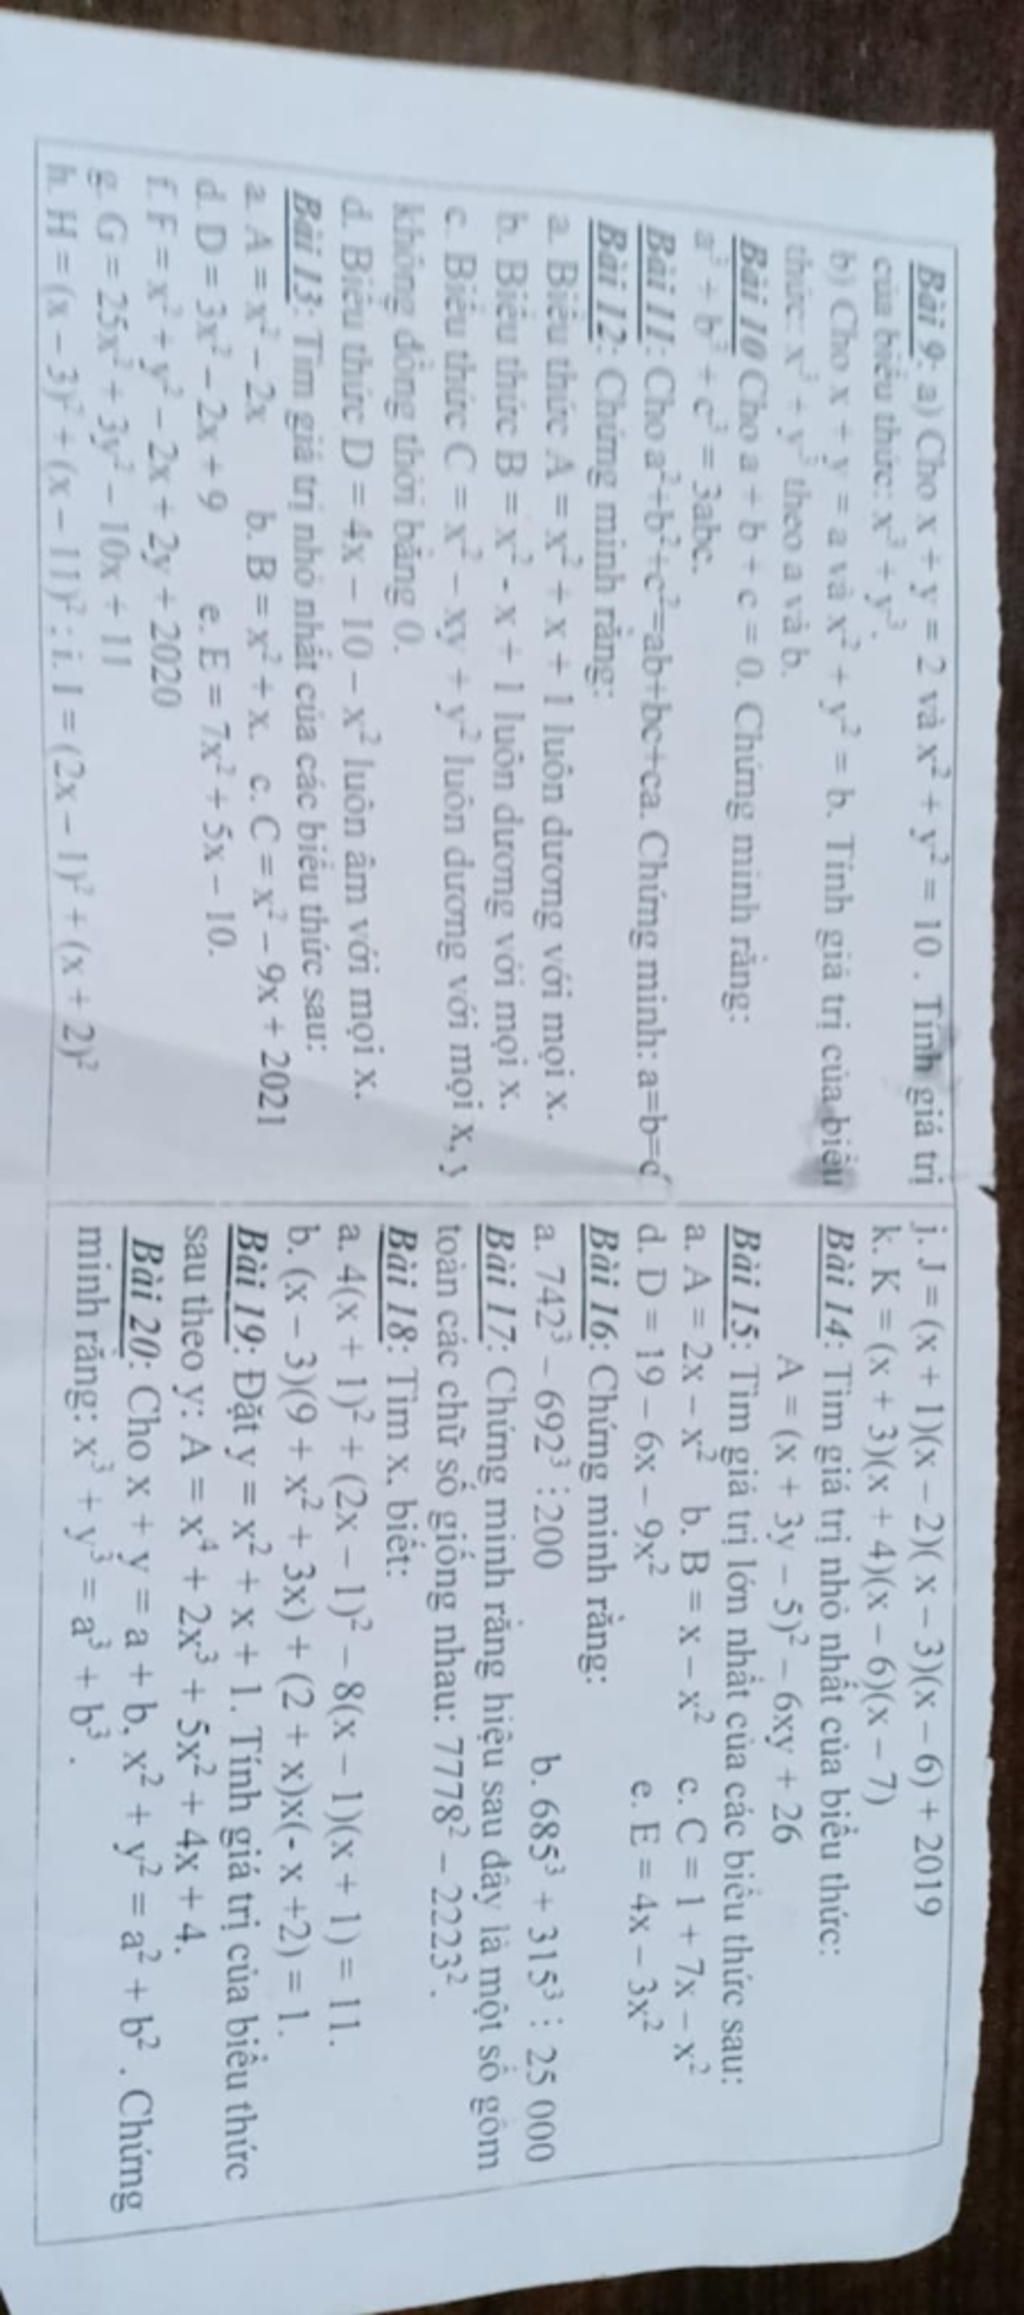 Bài 9: a) Cho x + y = 2 và x² + y² = 10 . Tính giá trị
của biểu thức: x³ + y³.
b) Cho x + y = a và x² + y² = b. Tính giá trị của biểu
thức: x³ + y³ theo a và b.
Bài 10 Cho a + b + c = 0. Chứng minh rằng:
a³ + b³ + c³ = 3abc.
Bài 11: Cho a²+b²+c²=ab+bc+ca. Chứng minh: a=b=c
Bài 12: Chứng minh rằng:
a. Biểu thức A = x² + x + 1 luôn dương với mọi x.
b. Biểu thức B = x² - x + 1 luôn dương với mọi x.
c. Biểu thức C = x² – xy + y² luôn dương với mọi x, y
không đồng thời bằng 0.
d. Biểu thức D = 4x – 10 – x² luôn âm với mọi x.
Bài 13: Tìm giá trị nhỏ nhất của các biểu thức sau:
a. A = x² – 2x b. B = x² + x. c. C = x² – 9x + 2021
d. D = 3x² – 2x + 9 e. E = 7x² + 5x – 10.
f. F = x² + y² – 2x + 2y + 2020
g. G = 25x² + 3y² – 10x + 11
h. H = (x – 3)² + (x – 11)² ; i. I = (2x – 1)² + (x + 2)²
j. J = (x + 1)(x – 2)( x – 3)(x – 6) + 2019
k. K = (x + 3)(x + 4)(x – 6)(x – 7)
Bài 14: Tìm giá trị nhỏ nhất của biểu thức:
A = (x + 3y – 5)² – 6xy + 26
Bài 15: Tìm giá trị lớn nhất của các biểu thức sau:
a. A = 2x – x² b. B = x – x² c. C = 1 + 7x – x²
d. D = 19 – 6x – 9x² e. E = 4x – 3x²
Bài 16: Chứng minh rằng:
a. 742³ – 692³ ⋮ 200 b. 685³ + 315³ ⋮ 25 000
Bài 17: Chứng minh rằng hiệu sau đây là một số gồm
toàn các chữ số giống nhau: 7778² – 2223².
Bài 18: Tìm x, biết:
a. 4(x + 1)² + (2x – 1)² – 8(x – 1)(x + 1) = 11.
b. (x – 3)(9 + x² + 3x) + (2 + x)x(- x +2) = 1.
Bài 19: Đặt y = x² + x + 1. Tính giá trị của biểu thức
sau theo y: A = x⁴ + 2x³ + 5x² + 4x + 4.
Bài 20: Cho x + y = a + b, x² + y² = a² + b² . Chứng
minh rằng: x³ + y³ = a³ + b³ .